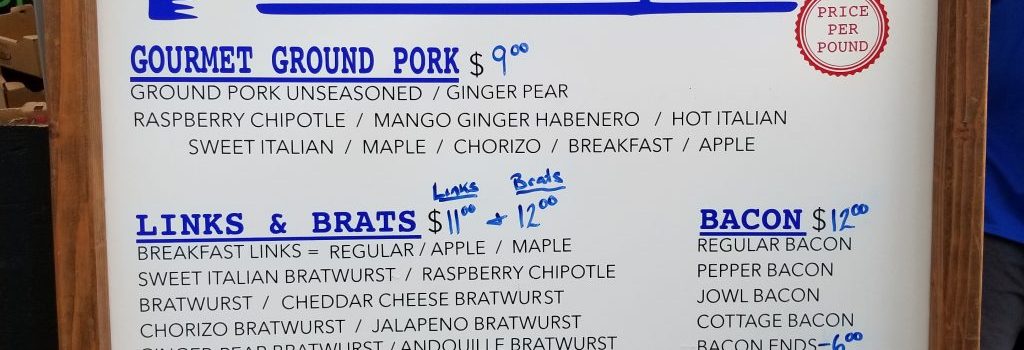 PRICE
PER
POUND
GOURMET GROUND PORK $ 9.00
GROUND PORK UNSEASONED / GINGER PEAR
RASPBERRY CHIPOTLE / MANGO GINGER HABENERO / HOT ITALIAN
SWEET ITALIAN / MAPLE / CHORIZO / BREAKFAST / APPLE
Links Brats
LINKS & BRATS $11.00 + 12.00
BREAKFAST LINKS = REGULAR / APPLE / MAPLE
SWEET ITALIAN BRATWURST / RASPBERRY CHIPOTLE
BRATWURST / CHEDDAR CHEESE BRATWURST
CHORIZO BRATWURST / JALAPENO BRATWURST
GINGER PEAR BRATWURST / ANDOUILLE BRATWURST
BACON $12.00
REGULAR BACON
PEPPER BACON
JOWL BACON
COTTAGE BACON
BACON ENDS-6.00